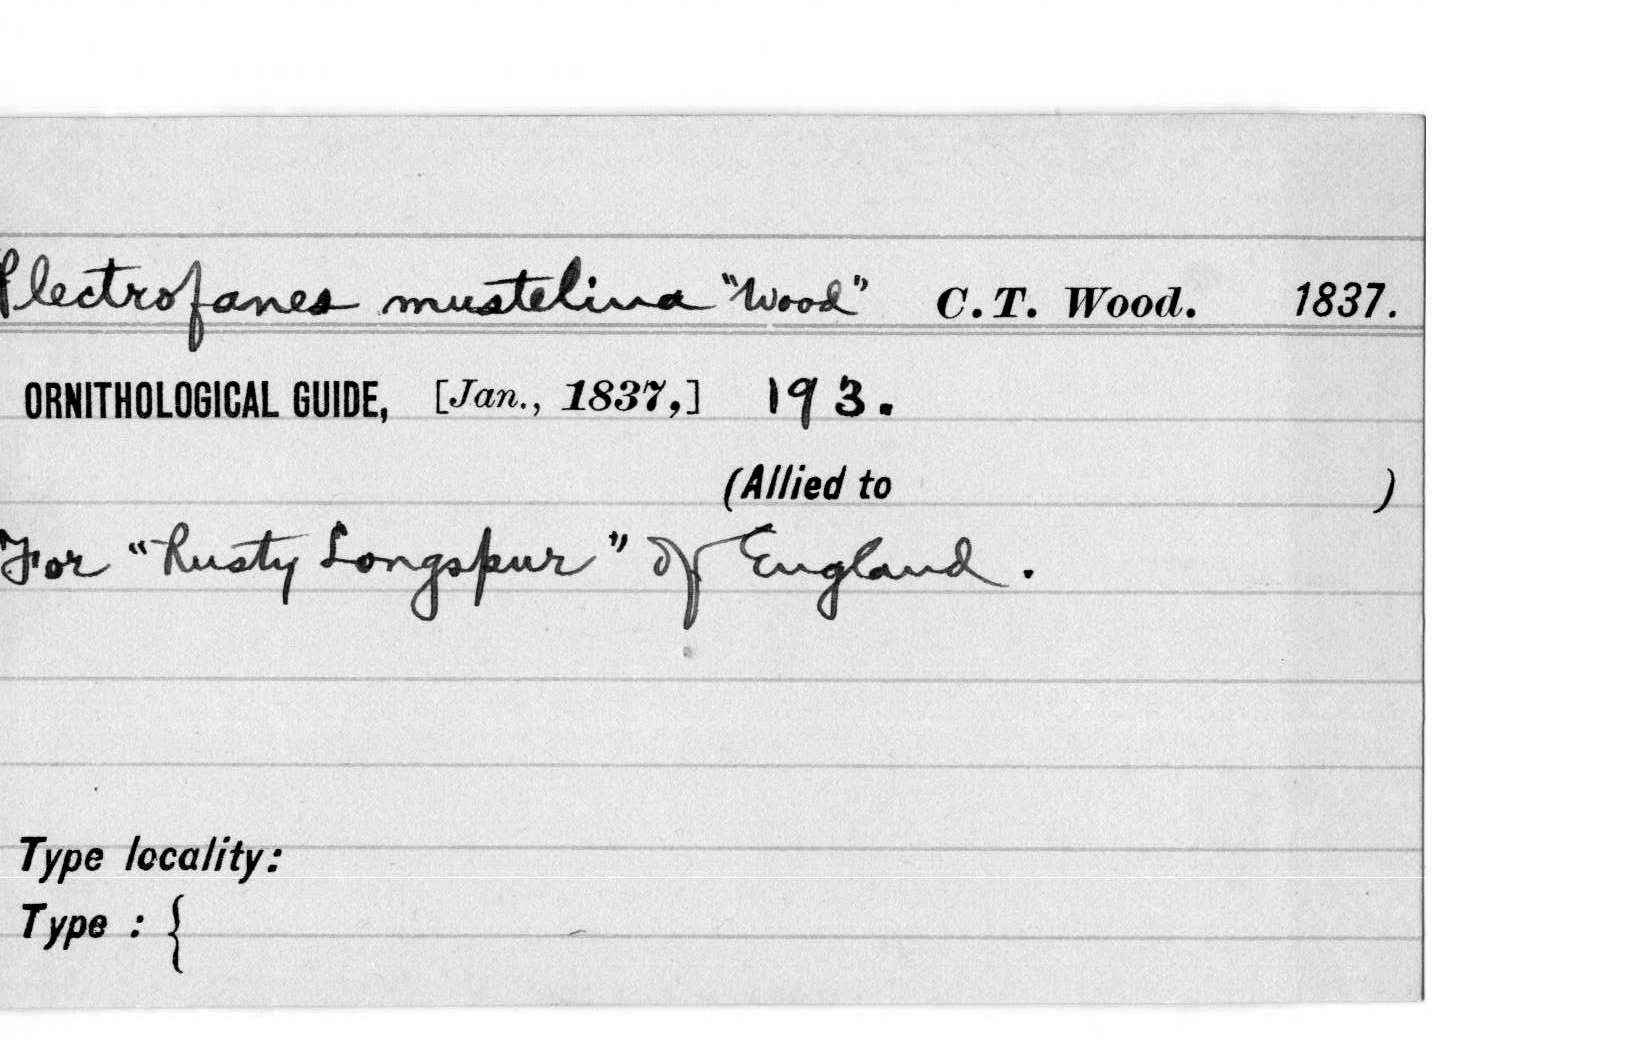 Plectrofanes mustelina "Wood" C.T. Wood. 1837.
ORNITHOLOGICAL GUIDE, [Jan., 1837,] 193.
(Allied to )
For "Rusty Longspur" of England.
Type locality:
Type : {